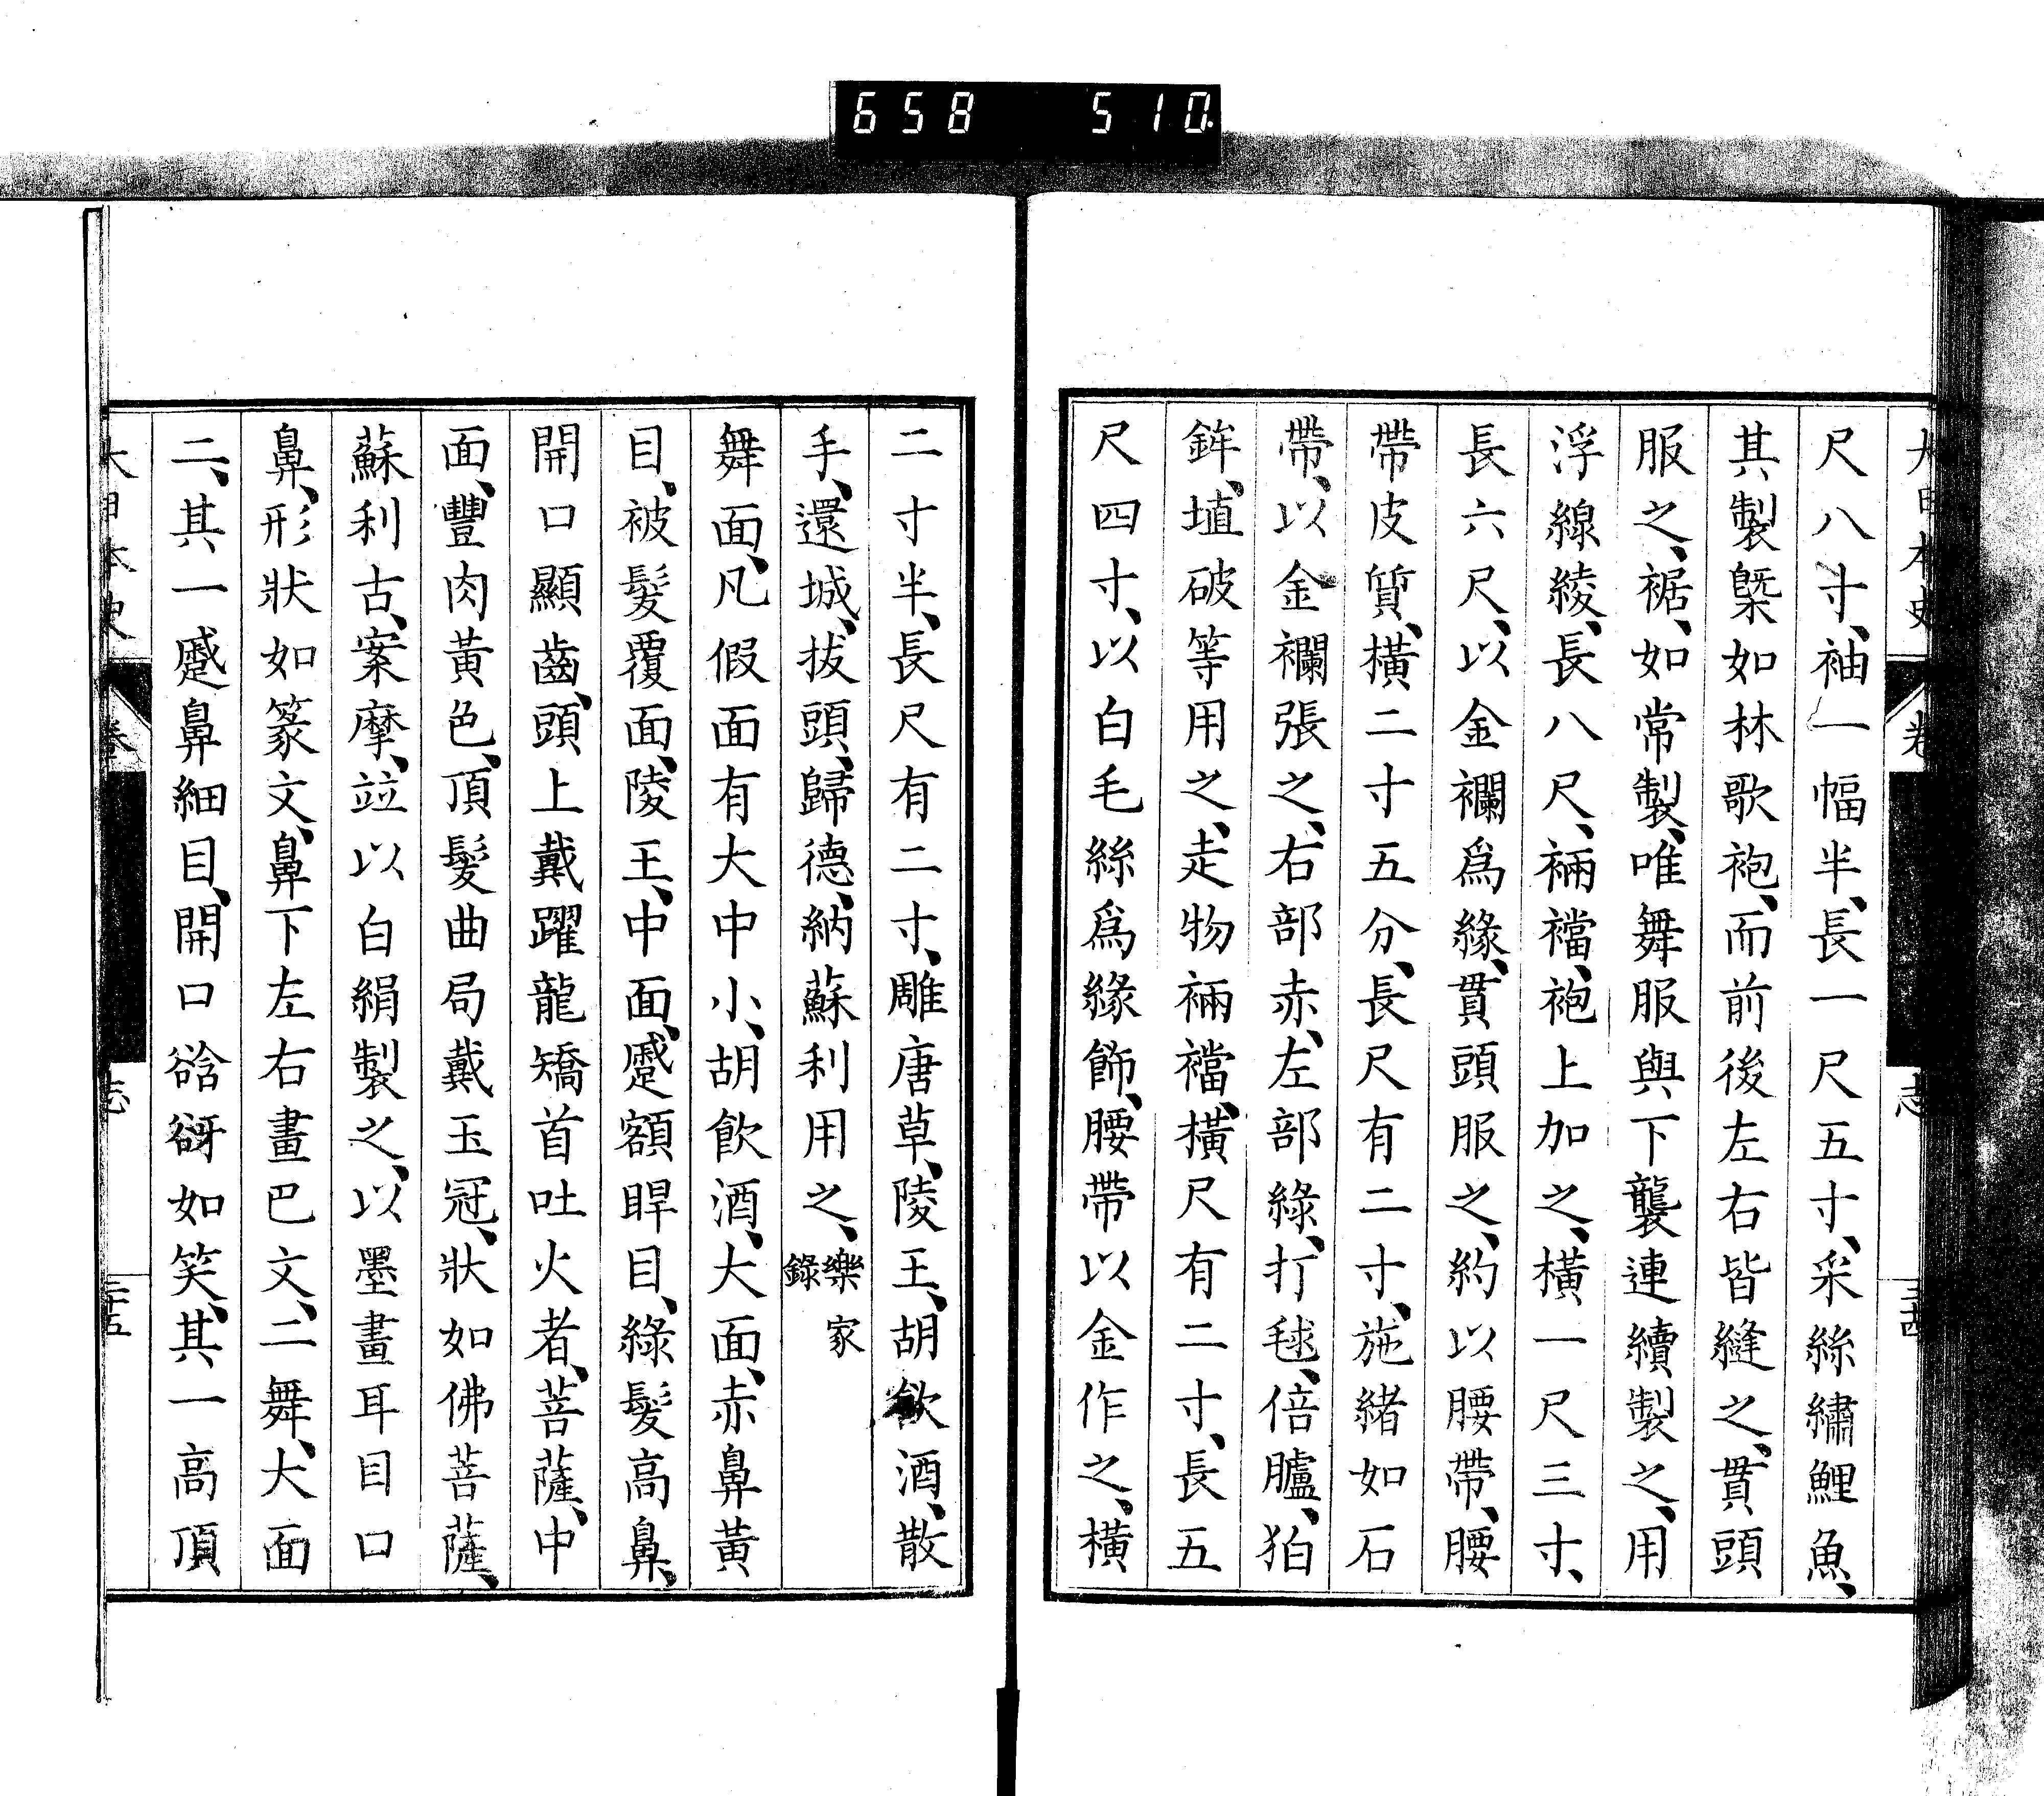 658 510
大日本史 卷 志 三十四
尺八寸、袖一幅半、長一尺五寸、采絲繡鯉魚、
其製槩如林歌袍、而前後左右皆縫之、貫頭
服之、裾、如常製、唯舞服與下襲連續製之、用
浮線綾、長八尺、裲襠、袍上加之、橫一尺三寸、
長六尺、以金襴爲緣、貫頭服之、約以腰帶、腰
帶皮質、橫二寸五分、長尺有二寸、施緒如石
帶、以金襴張之、右部赤、左部綠、打毬、倍臚、狛
鉾、埴破等用之、走物裲襠、橫尺有二寸、長五
尺四寸、以白毛絲爲緣飾、腰帶以金作之、橫
二寸半、長尺有二寸、雕唐草、陵王、胡飮酒、散
手、還城、拔頭、歸德、納蘇利用之、樂家錄
舞面、凡假面有大中小、胡飮酒、大面、赤鼻黃
目、被髮覆面、陵王、中面、蹙額睅目、綠髮高鼻、
開口顯齒、頭上戴躍龍矯首吐火者、菩薩、中
面、豐肉黃色、頂髮曲局戴玉冠、狀如佛菩薩、
蘇利古、案摩、竝以白絹製之、以墨畫耳目口
鼻、形狀如篆文、鼻下左右畫巴文、二舞、大面
二、其一蹙鼻細目、開口谽谺如笑、其一高頂
大日本史 卷 志 三十五